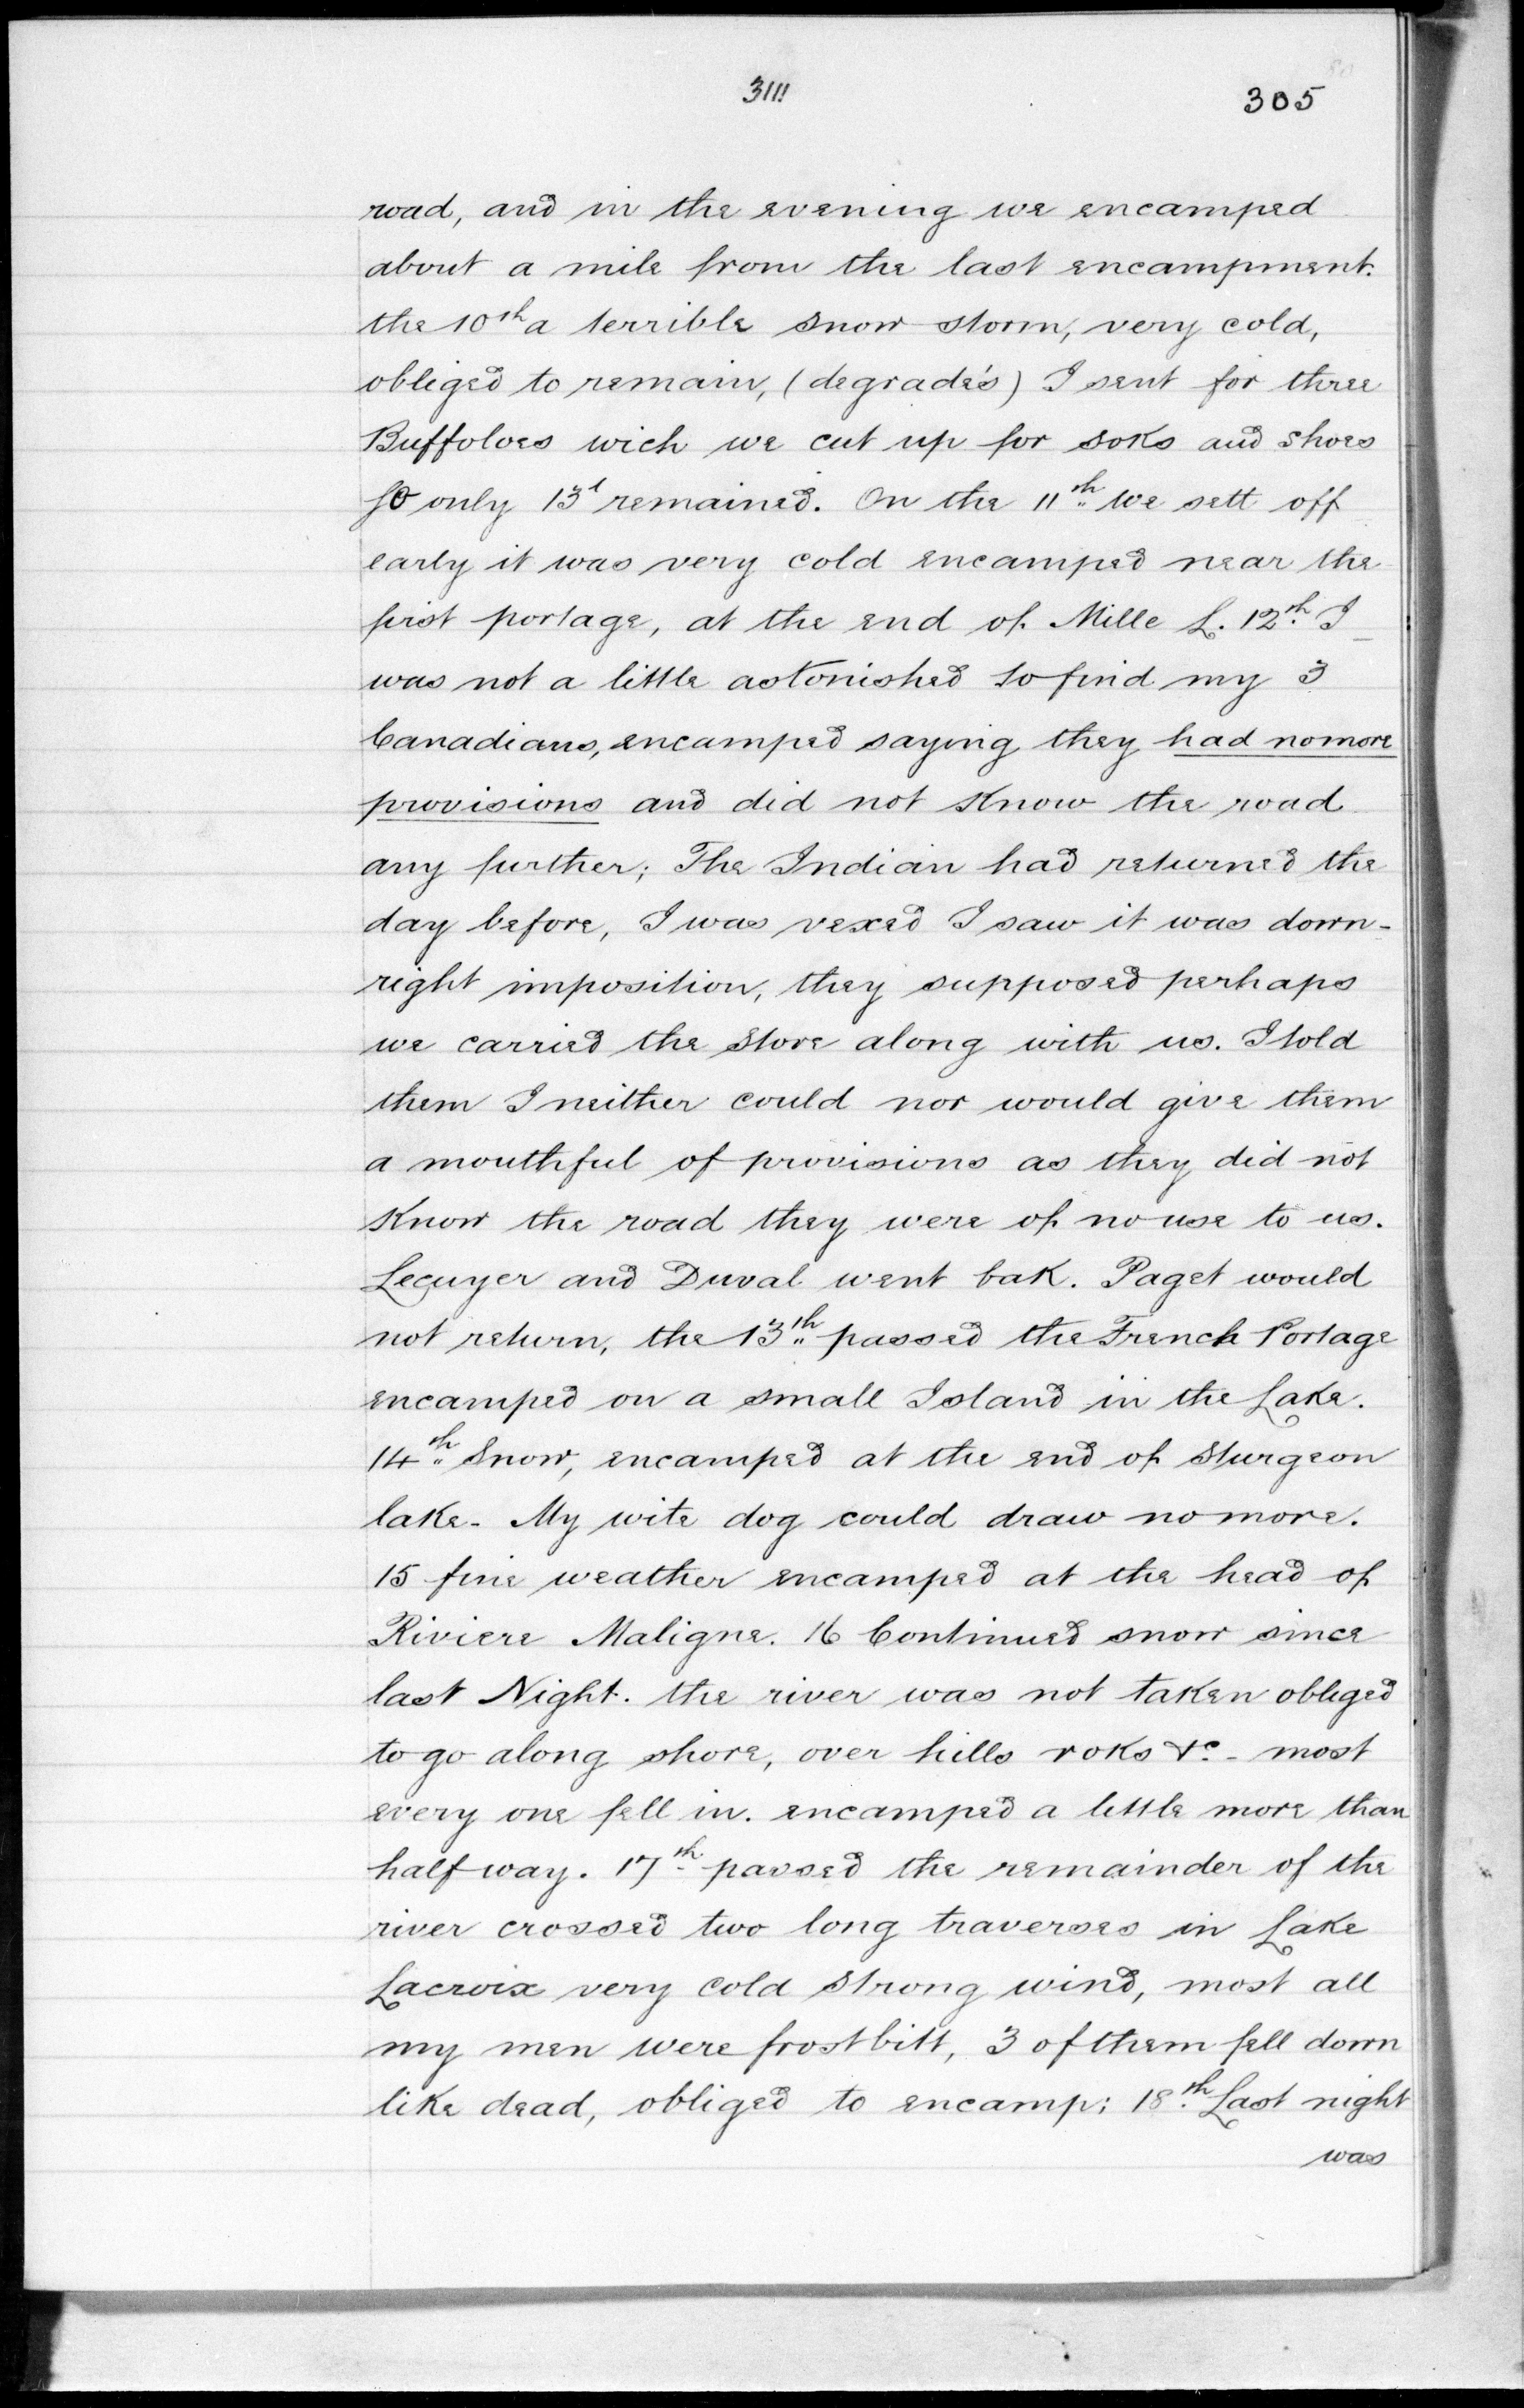 3111
305
road, and in the evening we encamped
about a mile from the last encampment.
the 10th a terrible snow storm, very cold,
obliged to remain, (degradés) I sent for three
Buffoloes wich we cut up for soks and shoes
so only 13 remained. On the 11th We sett off
early it was very cold encamped near the
first portage, at the end of Mille L. 12th I
was not a little astonished to find my 3
Canadians, encamped saying they had no more
provisions and did not Know the road
any further; The Indian had returned the
day before, I was vexed I saw it was down-
right imposition, they supposed perhaps
we carried the store along with us. I told
them I neither could nor would give them
a mouthful of provisions as they did not
Know the road they were of no use to us.
Lecuyer and Duval went bak. Paget would
not return, the 13th passed the French Portage
encamped on a small Island in the Lake.
14th Snow, encamped at the end of Sturgeon
lake - My wite dog could draw no more.
15 fine weather encamped at the head of
Riviere Maligne. 16 Continued snow since
last Night. the river was not taken obliged
to go along shore, over hills roks &c - most
every one fell in. encamped a little more than
half way. 17th passed the remainder of the
river crossed two long traverses in Lake
Lacroix very cold strong wind, most all
my men were frostbitt, 3 of them fell down
like dead, obliged to encamp; 18th Last night
was